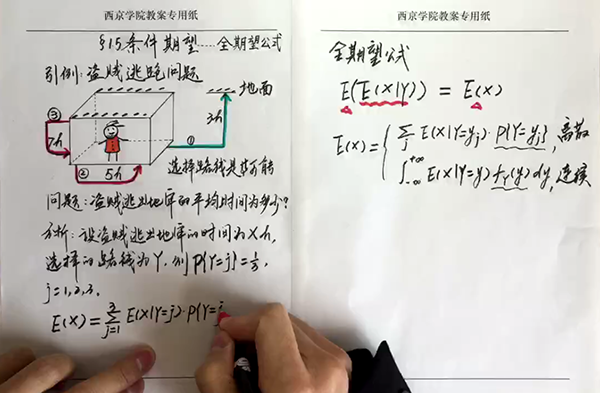 西京学院教案专用纸
§15.条件期望……全期望公式
引例:盗贼逃跑问题
地面
③
3h
7h
①
② 5h
选择路线是等可能
问题:盗贼逃出地库的平均时间为多少?
分析:设盗贼逃出地库的时间为Xh,
选择的路线为Y,则P{Y=j}=1/3,
j=1,2,3.
E(X)=∑_{j=1}^{3} E(X|Y=j)·P{Y=j
西京学院教案专用纸
全期望公式
E(E(X|Y)) = E(X)
E(X)={∑_j E(X|Y=y_j)·P{Y=y_j},离散
∫_{-∞}^{+∞} E(X|Y=y) f_Y(y) dy,连续